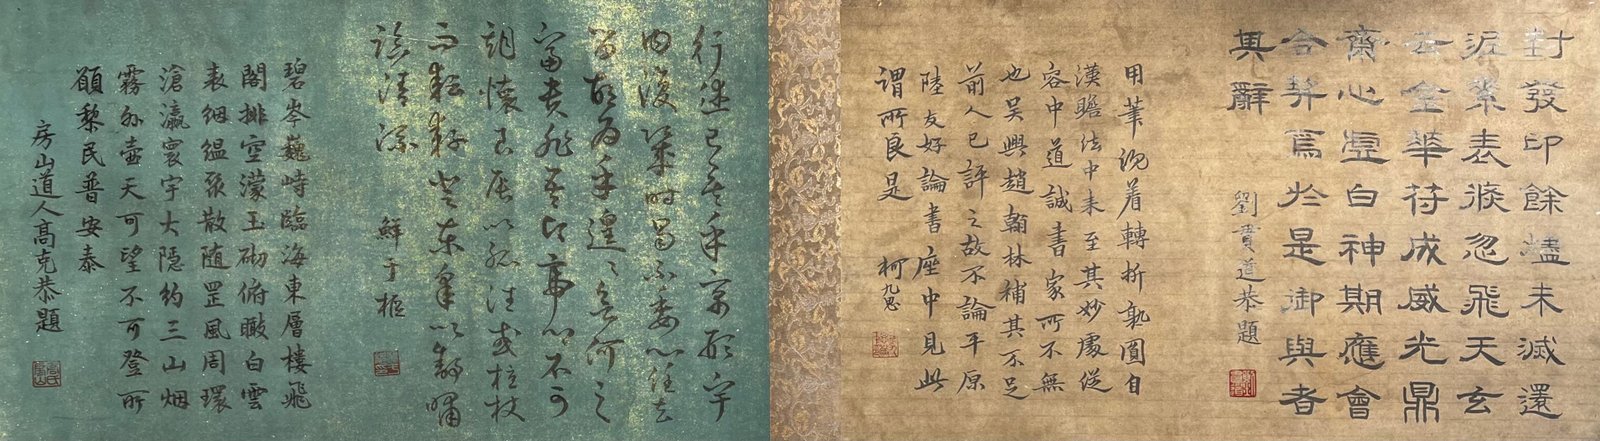 封發印餘爐未滅還
素表倏忽飛天玄
去金華符成威光鼎
齋心虛白神期應會
合契焉於是御與者
其辭
劉貫道恭題
用筆沉着轉折圓自
漢瞻法中来至其妙處從
容中道誠書家所不無
也吳興趙翰林補其不足
前人已評之故不論平原
陸友好論書座中見此
謂所良是
柯九思
行休已矣乎寓形宇
内復幾時曷不委心任去
留胡為乎遑〻欲何之
富貴非吾願帝鄉不可
期懷良辰以孤往或植杖
而耘耔登東皋以舒嘯
臨清流
鮮于樞
碧岑巍峙臨海東層樓飛
閣排空濛玉砌俯瞰白雲
表絪縕聚散随罡風周環
滄瀛寰宇大隱約三山烟
霧外壺天可望不可登所
願黎民普安泰
房山道人高克恭題